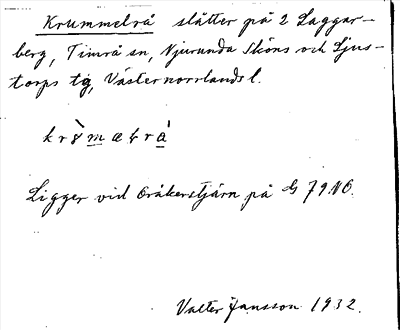 Krummelrå slåtter på 2 Laggar-
berg, Timrå sn, Njurunda Sköns och Ljus-
torps tg, Västernorrlands l.
Ligger vid Oråkerstjärn på G 79.NO.
Valter Jansson 1932.